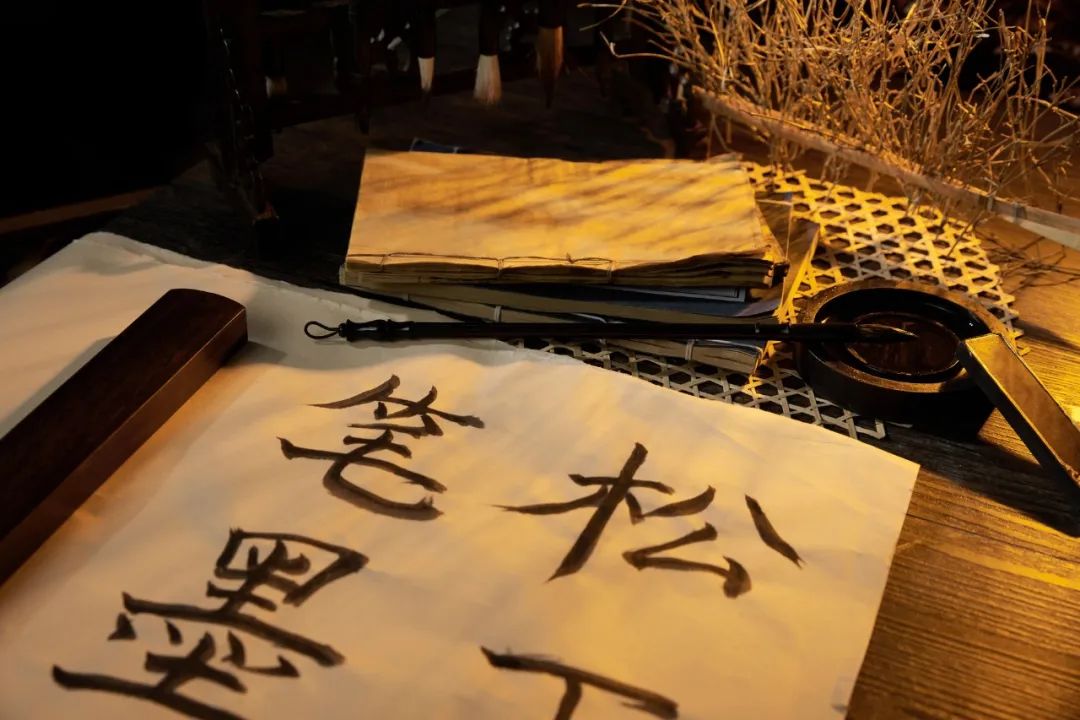 松下
笔墨